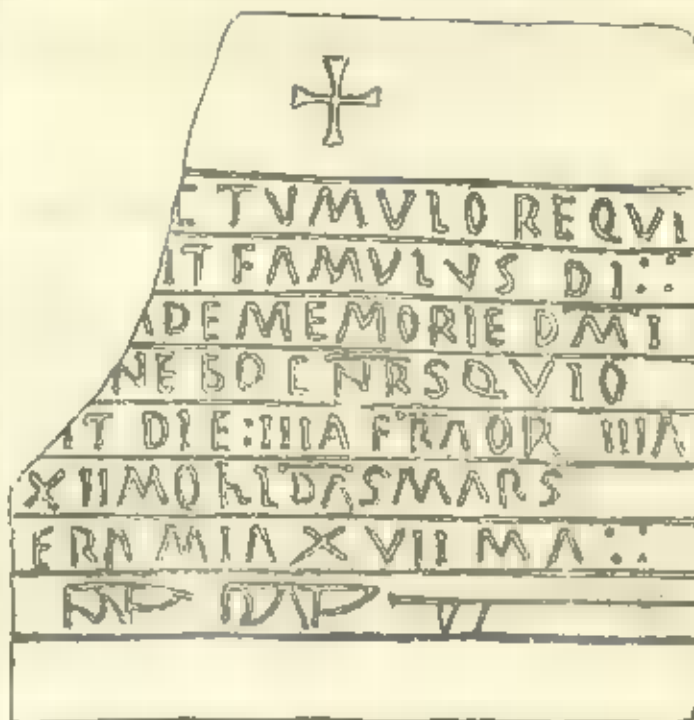 C TVMVLO REQVI
IT FAMVLVS DI:·:
ADE MEMORIE DMI
NEBO CNRSQVIO
IT DIE:IIIIA FRAOR IIIIA
XIIMO KLDASMARS
ERA MIA XVII MA :·: